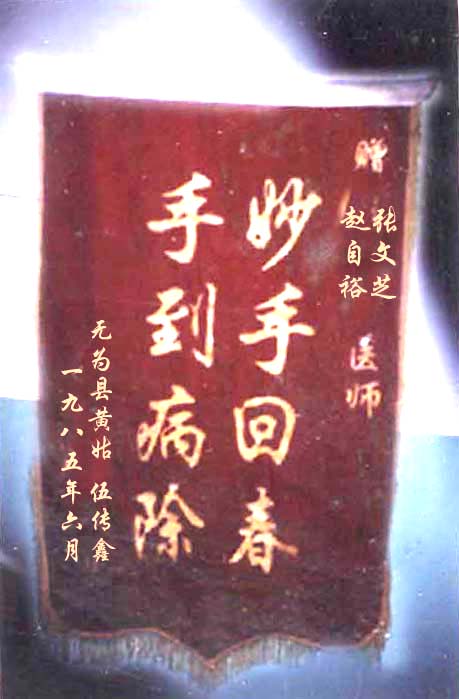 赠
张文芝
赵自裕
医师
妙手回春
手到病除
无为县黄姑 伍传鑫
一九八五年六月